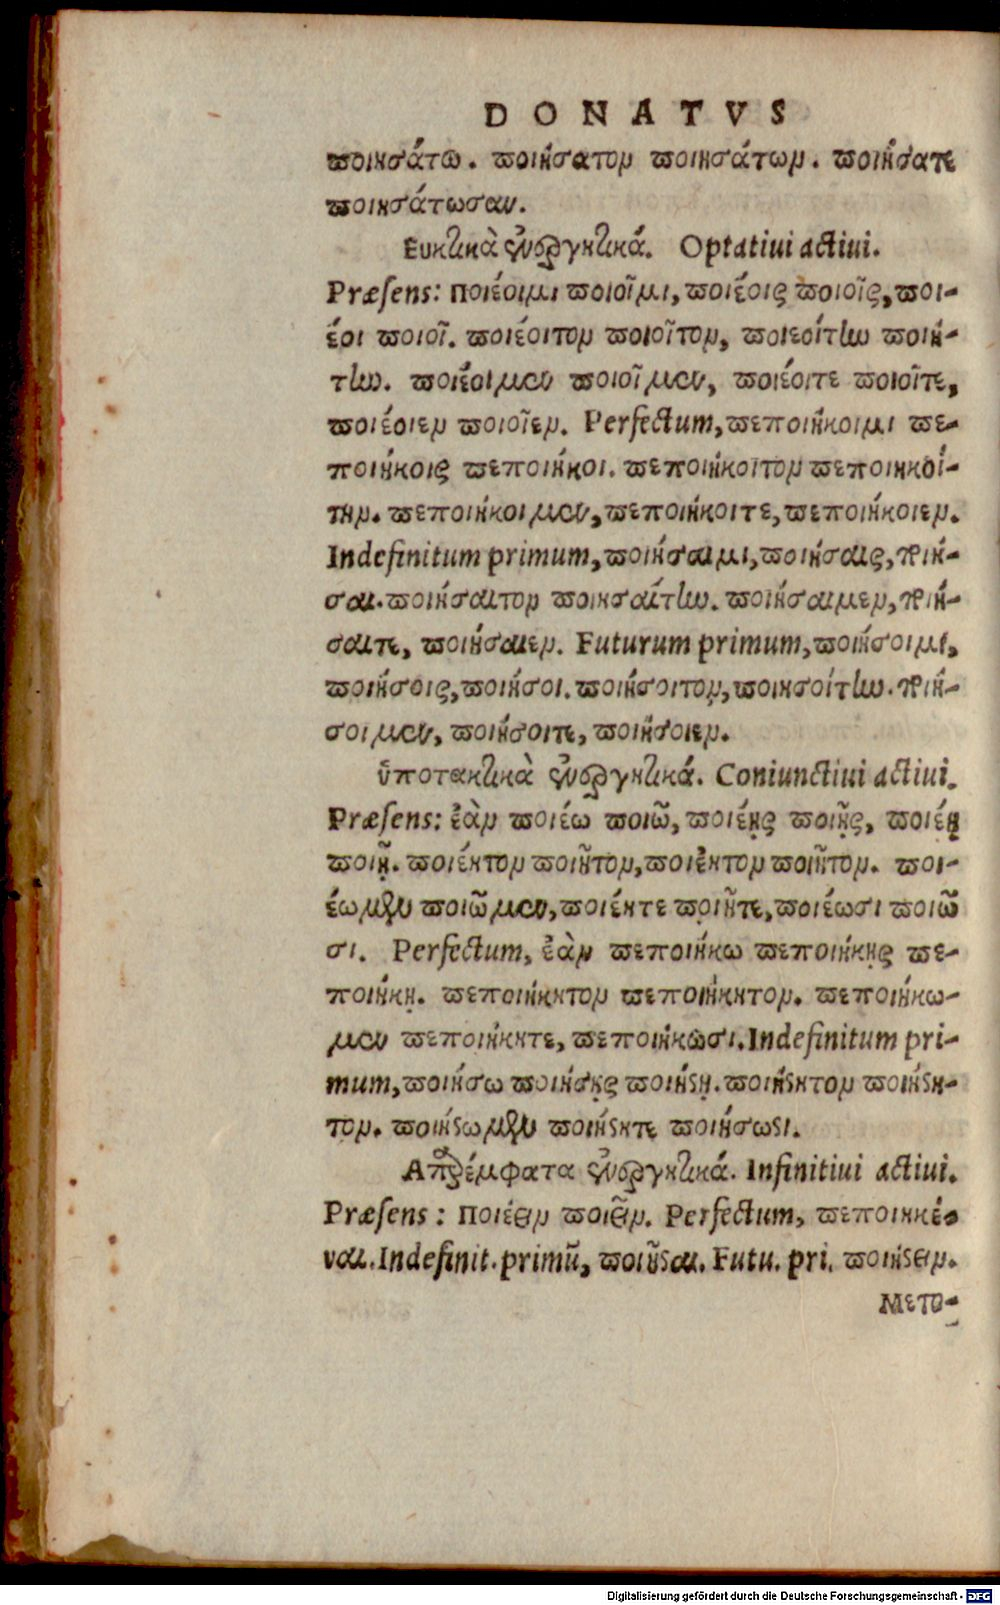 DONATVS
ποιησάτω. ποιήσατον ποιησάτων. ποιήσατε
ποιησάτωσαν.
Ευκτικὰ ἐνεργητικά. Optatiui actiui.
Præsens: ποιέοιμι ποιοῖμι, ποιέοις ποιοῖς, ποι-
έοι ποιοῖ. ποιέοιτον ποιοῖτον, ποιεοίτην ποιή-
την. ποιέοιμεν ποιοῖμεν, ποιέοιτε ποιοῖτε,
ποιέοιεν ποιοῖεν. Perfectum, πεποιήκοιμι πε-
ποιήκοις πεποιήκοι. πεποιήκοιτον πεποιηκοί-
την. πεποιήκοιμεν, πεποιήκοιτε, πεποιήκοιεν.
Indefinitum primum, ποιήσαιμι, ποιήσαις, ποιή-
σαι. ποιήσαιτον ποιησαίτην. ποιήσαιμεν, ποιή-
σαιτε, ποιήσαιεν. Futurum primum, ποιήσοιμι,
ποιήσοις, ποιήσοι. ποιήσοιτον, ποιησοίτην. ποιή-
σοιμεν, ποιήσοιτε, ποιήσοιεν.
ὑποτακτικὰ ἐνεργητικά. Coniunctiui actiui.
Præsens: ἐὰν ποιέω ποιῶ, ποιέῃς ποιῇς, ποιέῃ
ποιῇ. ποιέητον ποιῆτον, ποιέητον ποιῆτον. ποι-
έωμεν ποιῶμεν, ποιέητε ποιῆτε, ποιέωσι ποιῶ
σι. Perfectum, ἐὰν πεποιήκω πεποιήκῃς πε-
ποιήκῃ. πεποιήκητον πεποιήκητον. πεποιήκω-
μεν πεποιήκητε, πεποιήκωσι. Indefinitum pri-
mum, ποιήσω ποιήσῃς ποιήσῃ. ποιήσητον ποιήση-
τον. ποιήσωμεν ποιήσητε ποιήσωσι.
Απαρέμφατα ἐνεργητικά. Infinitiui actiui.
Præsens: ποιέειν ποιεῖν. Perfectum, πεποιηκέ-
ναι. Indefinit. primũ, ποιῆσαι. Futu. pri. ποιήσειν.
Μετο-
Digitalisierung gefördert durch die Deutsche Forschungsgemeinschaft - DFG